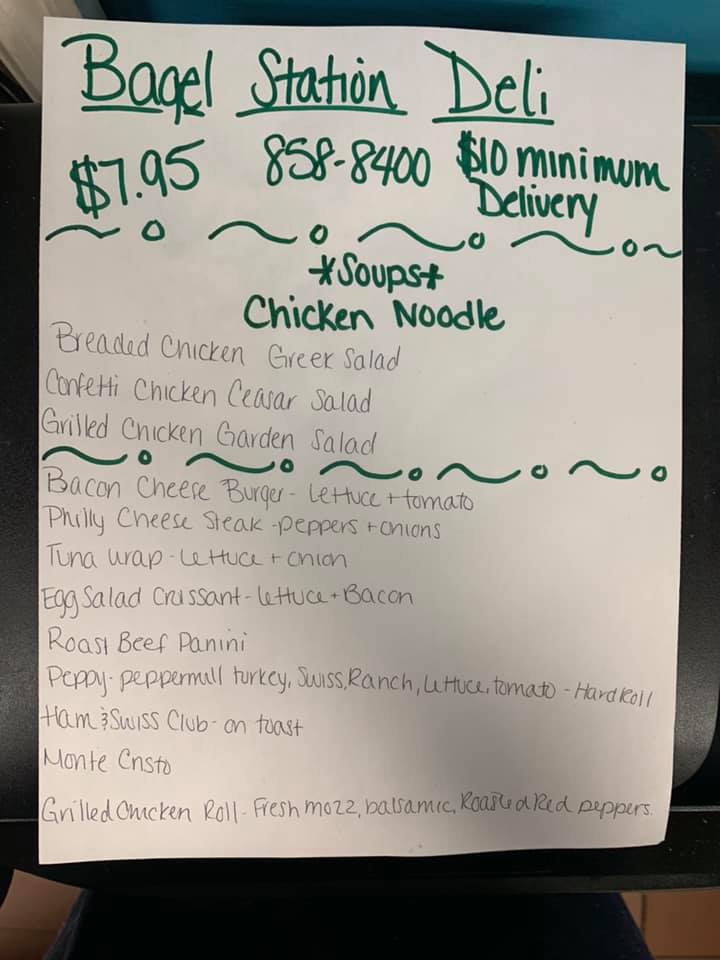 Bagel Station Deli
$7.95 858-8400 $10 minimum Delivery
*Soups*
Chicken Noodle
Breaded Chicken Greek Salad
Confetti Chicken Ceasar Salad
Grilled Chicken Garden Salad
Bacon Cheese Burger - Lettuce + tomato
Philly Cheese Steak - peppers + onions
Tuna wrap - Lettuce + onion
Egg Salad Crissant - lettuce + Bacon
Roast Beef Panini
Peppy - peppermill turkey, Swiss, Ranch, Lettuce, tomato - Hard Roll
Ham & Swiss Club - on toast
Monte Cristo
Grilled Chicken Roll - Fresh mozz, balsamic, Roasted Red peppers.